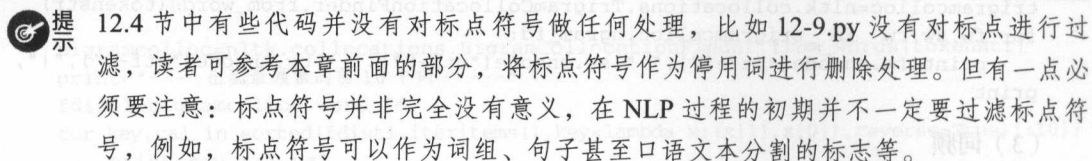 提示 12.4 节中有些代码并没有对标点符号做任何处理，比如 12-9.py 没有对标点进行过
滤，读者可参考本章前面的部分，将标点符号作为停用词进行删除处理。但有一点必
须要注意：标点符号并非完全没有意义，在 NLP 过程的初期并不一定要过滤标点符
号，例如，标点符号可以作为词组、句子甚至口语文本分割的标志等。